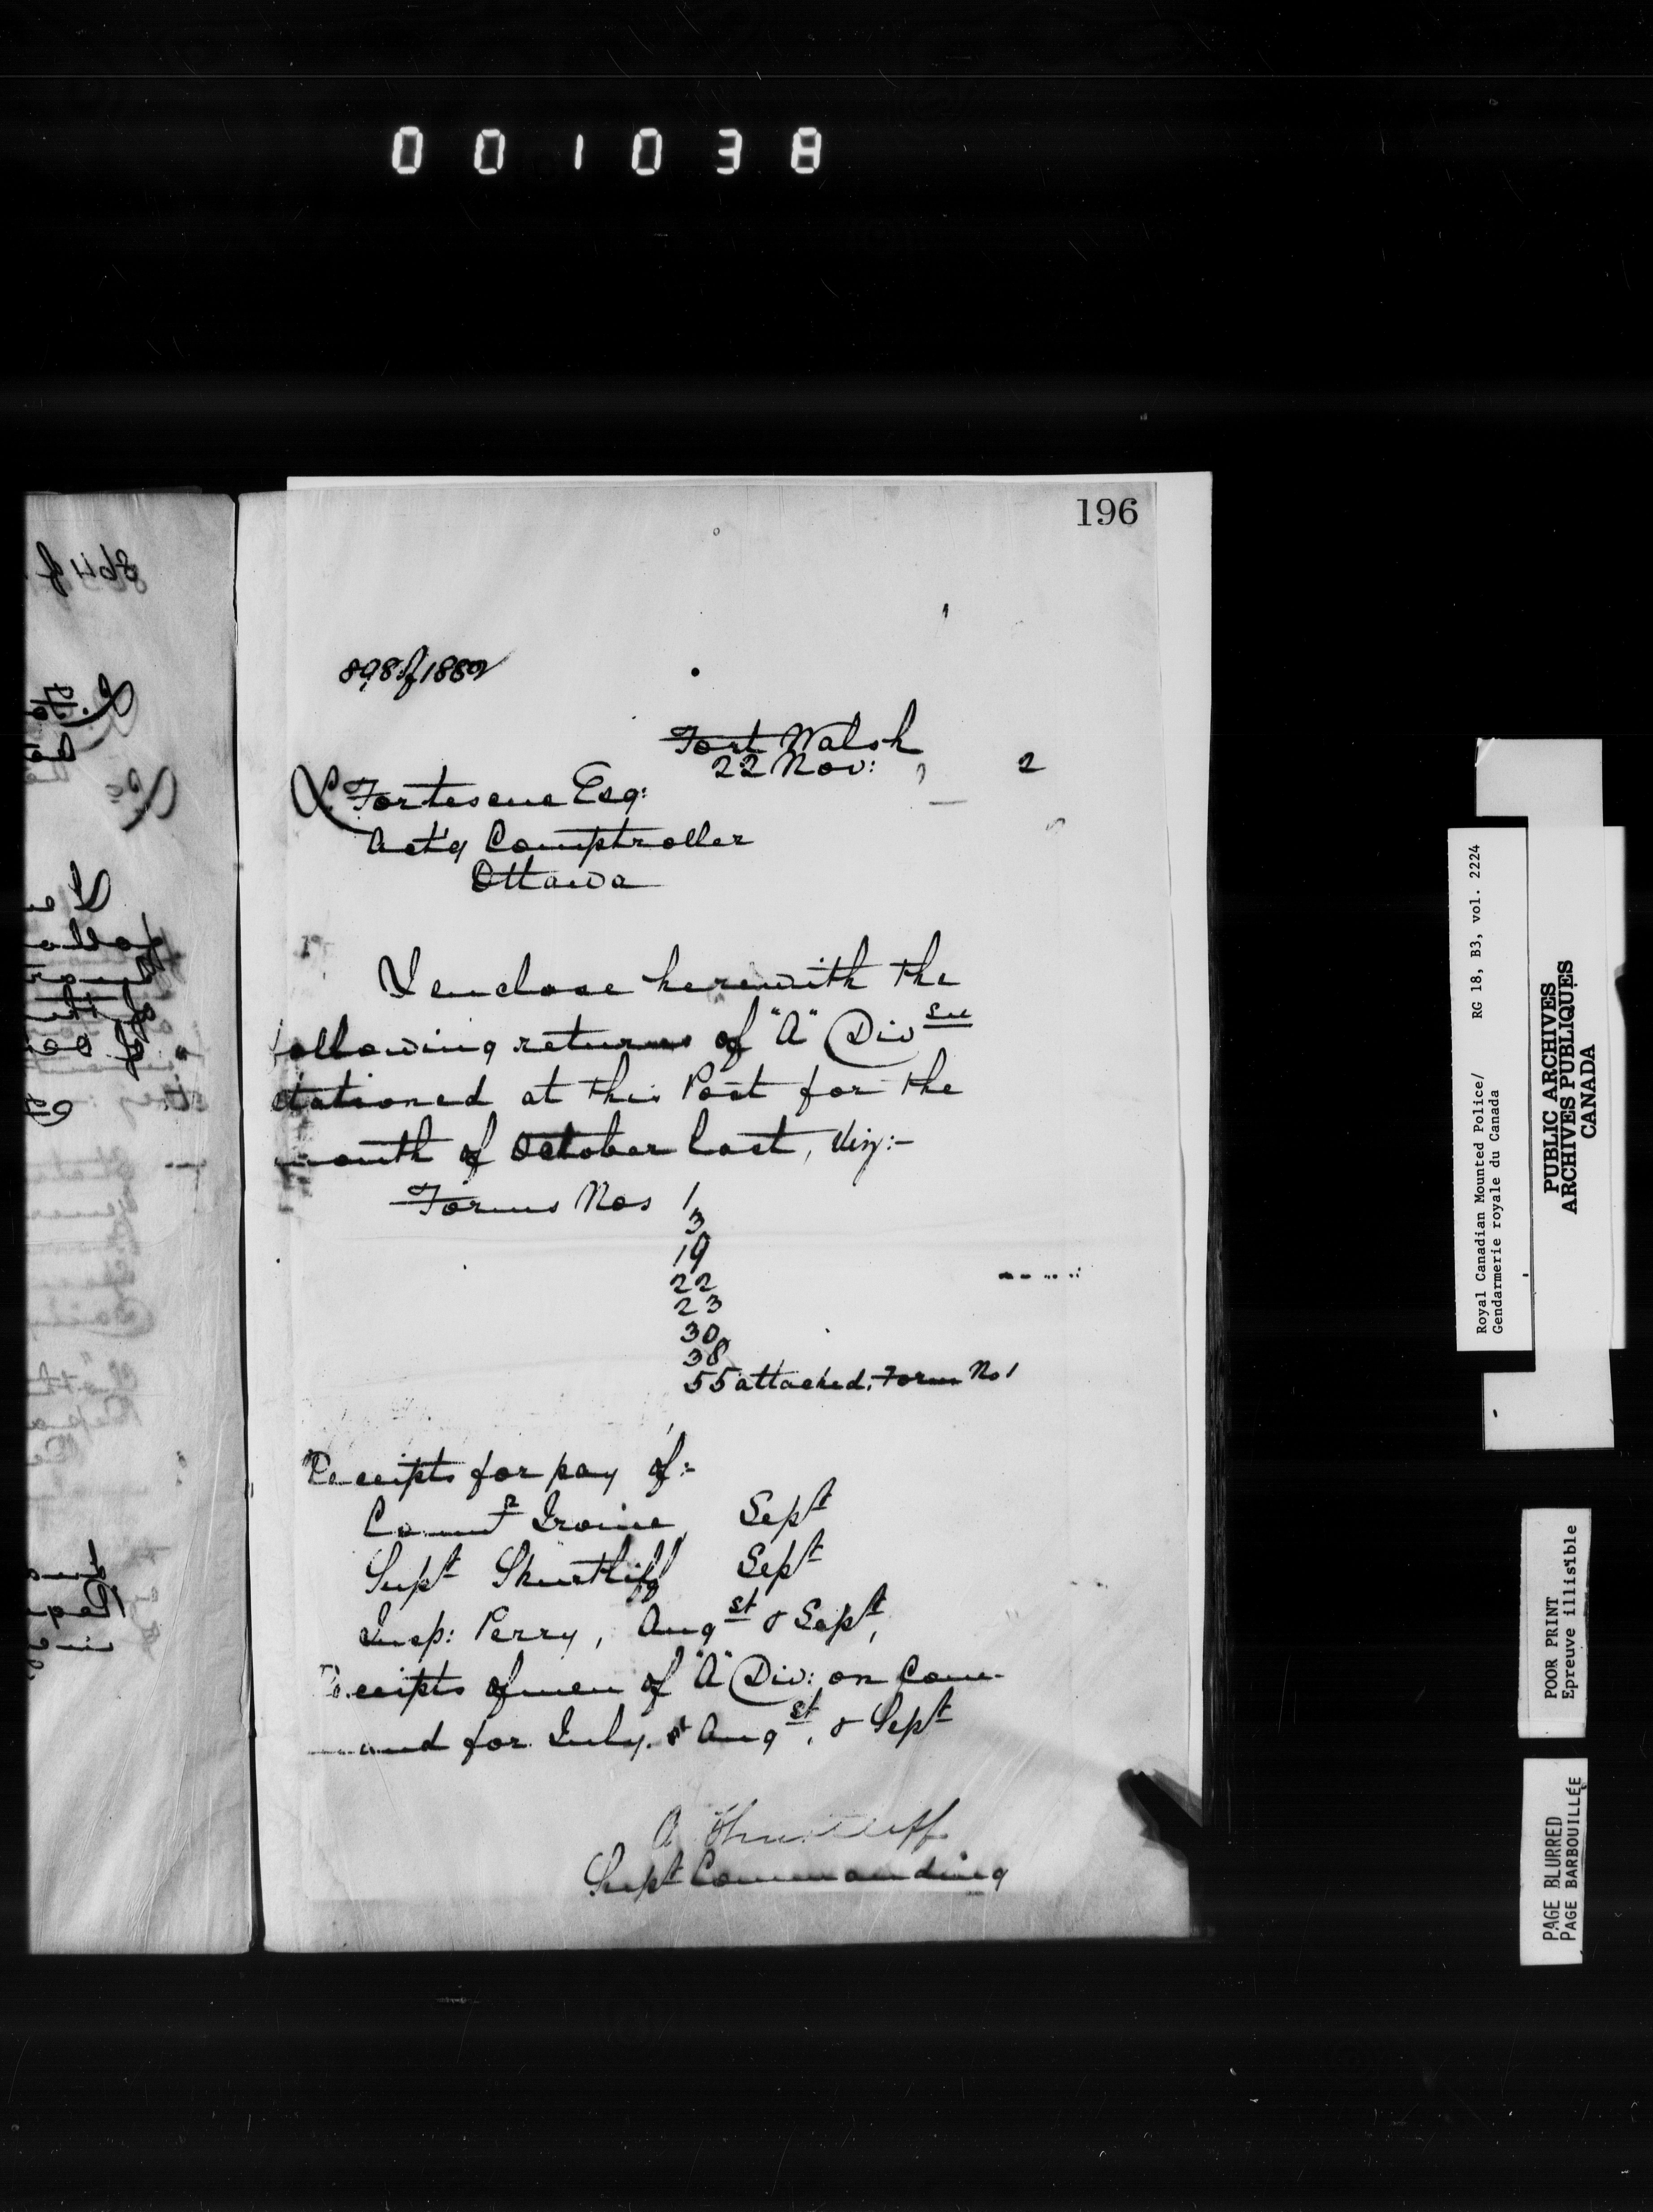 001038
196
898/1882
Fort Walsh
22 Nov: 2
L. Fortescue Esq:
Act'g Comptroller
Ottawa
I enclose herewith the
following returns of "A" Div
stationed at this Post for the
month of October last, viz:-
Forms Nos 1
3
19
22
23
30
38
55 attached. Form No 1
Receipts for pay of:-
Irvine Sept
Supt Shurtliff Sept
Insp: Perry, Augst & Sept,
Receipts of men of "A" Div: on Com-
mand for July. & Augst, & Sept
A Shurtliff
Supt Commanding
Royal Canadian Mounted Police/ RG 18, B3, vol. 2224
Gendarmerie royale du Canada
PUBLIC ARCHIVES
ARCHIVES PUBLIQUES
CANADA
POOR PRINT
Epreuve illisible
PAGE BLURRED
PAGE BARBOUILLÉE